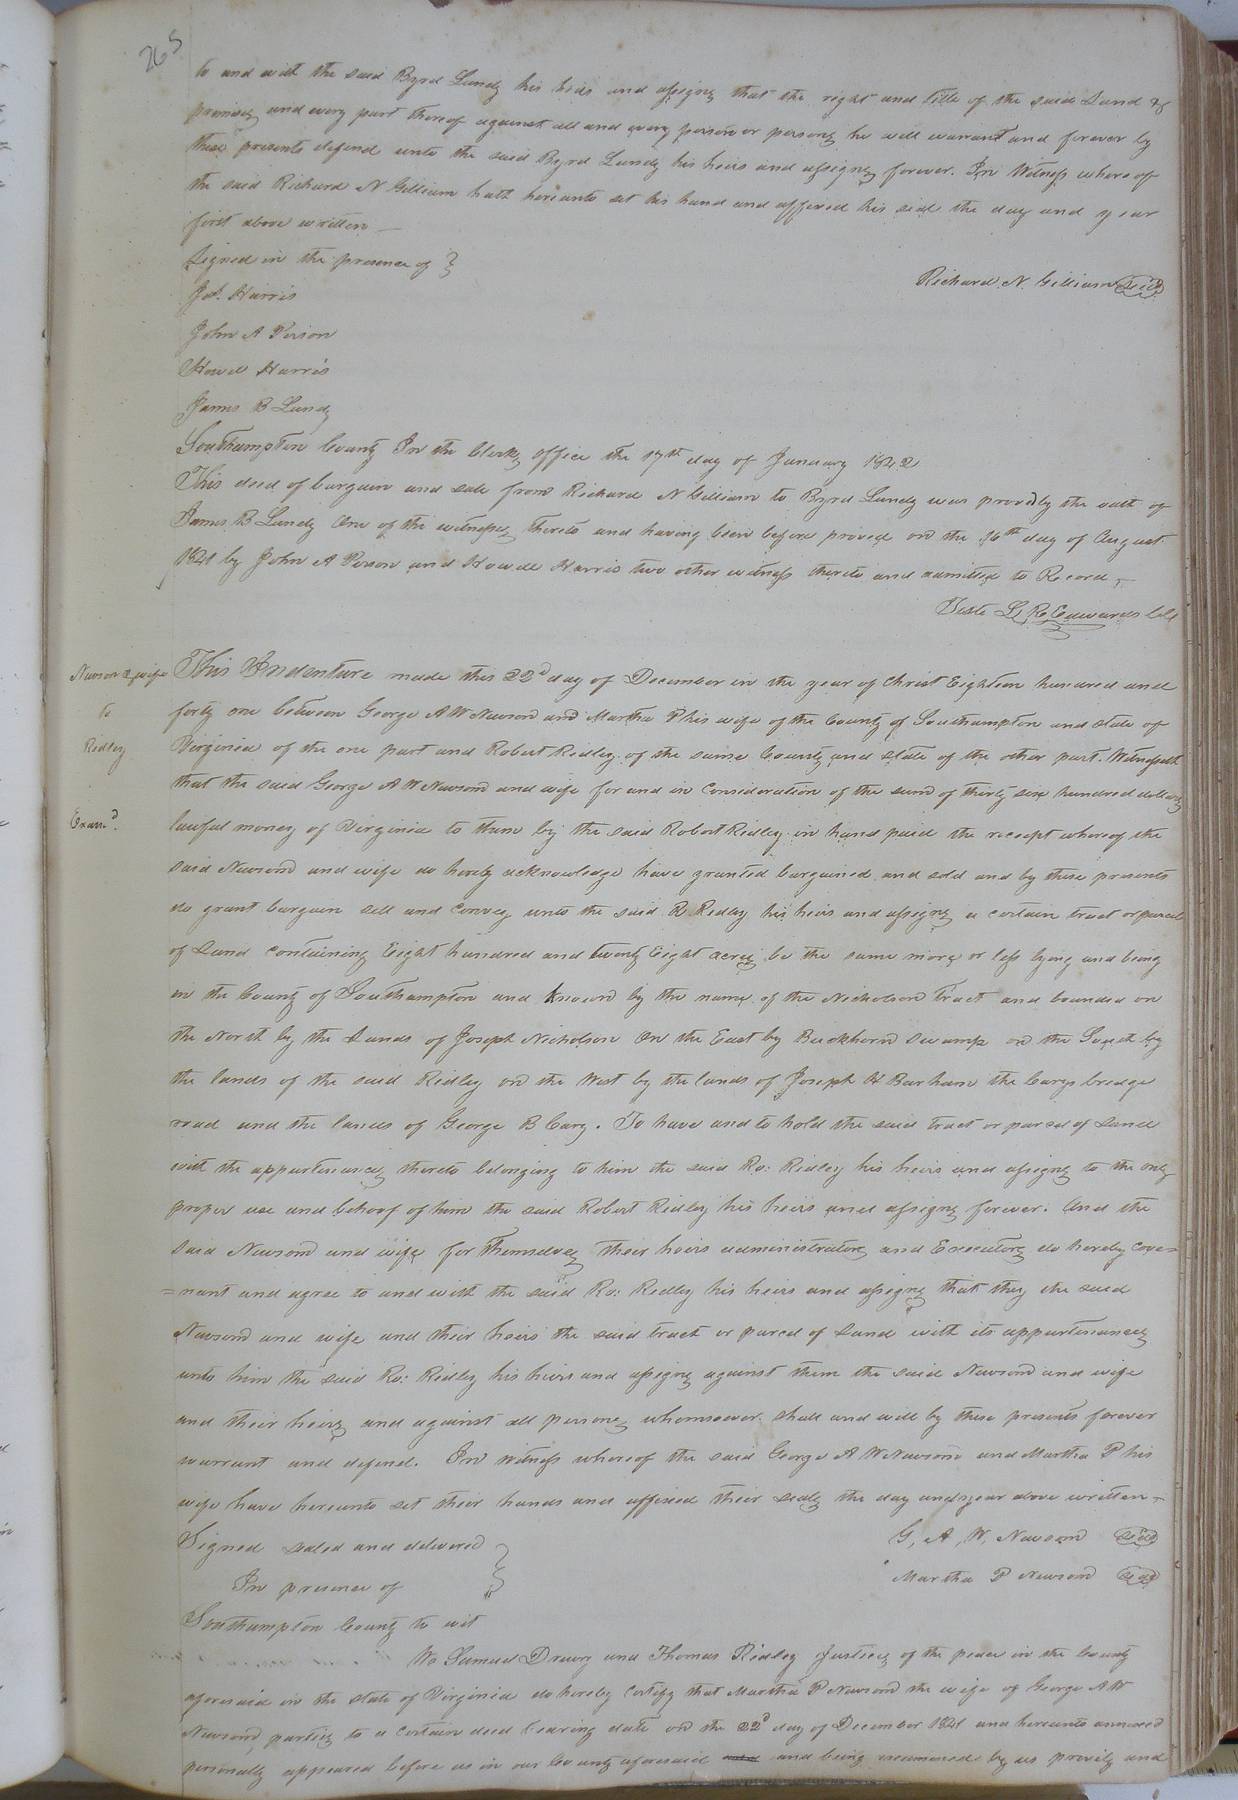 265
to and with the said Byrd Lundy his heirs and assigns that the right and title of the said Land &
premises and every part thereof against all and every person or persons he will warrant and forever by
these presents defend unto the said Byrd Lundy his heirs and assigns forever. In Witness whereof
the said Richard N Gilliam hath hereunto set his hand and affixed his seal the day and year
first above written
Signed in the presence of }
Richard. N. Gilliam Seal
Jos. Harris
John A Person
Howel Harris
James B Lundy
Southampton County In the Clerks office the 17th day of January 1842
This deed of bargain and sale from Richard N Gilliam to Byrd Lundy was proved by the oath of
James B Lundy One of the witnesses thereto and having been before proved on the 16th day of August
1841 by John A Person and Howell Harris two other witness thereto and admitted to Record,
Teste L. R. Edwards Clk
Newsom & wife
to
Ridley
Exam.d
This Indenture made this 22d day of December in the year of Christ Eighteen hundred and
forty one between George A W Newsom and Martha P his wife of the County of Southampton and state of
Virginia of the one part and Robert Ridley of the same County and state of the other part. Witnesseth
that the said George A W Newsom and wife for and in Consideration of the sum of thirty six hundred dollars
lawful money of Virginia to them by the said Robert Ridley in hand paid the receipt whereof the
said Newsom and wife do hereby acknowledge have granted bargained and sold and by these presents
do grant bargain sell and Convey unto the said R Ridley his heirs and assigns a certain tract or parcel
of Land containing Eight hundred and twenty Eight acres be the same more or less lying and being
in the County of Southampton and known by the name of the Nicholson tract and bounded on
the North by the Lands of Joseph Nicholson On the East by Buckhorn Swamp on the South by
the lands of the said Ridley on the West by the lands of Joseph H Barham the Carys bridge
road and the lands of George B Cary. To have and to hold the said tract or parcel of Land
with the appurtenances thereto belonging to him the said Ro: Ridley his heirs and assigns to the only
proper use and behoof of him the said Robert Ridley his heirs and assigns forever. And the
said Newsom and wife for themselves their heirs administrators and Executors do hereby cove=
=nant and agree to and with the said Ro: Ridley his heirs and assigns that they the said
Newsom and wife and their heirs the said tract or parcel of Land with its appurtenances
unto him the said Ro: Ridley his heirs and assigns against them the said Newsom and wife
and their heirs and against all persons whomsoever. shall and will by these presents forever
warrant and defend. In witness whereof the said George A W Newsom and Martha P his
wife have hereunto set their hands and affixed their seals the day and year above written
Signed sealed and delivered }
G, A, W, Newsom Seal
In presence of
Martha P Newsom Seal
Southampton County to wit
We Samuel Drewry and Thomas Ridley Justices of the peace in the County
aforesaid in the state of Virginia do hereby certify that Martha P Newsom the wife of George A W
Newsom, parties to a certain deed bearing date on the 22d day of December 1841 and hereunto annexed
personally appeared before us in our County aforesaid and being examined by us privily and